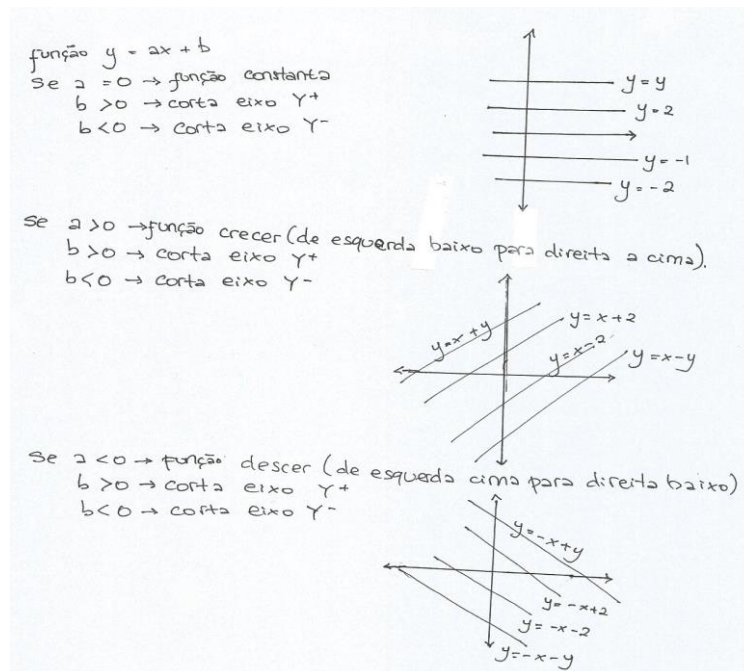 função y = ax + b
Se a = 0 → função constanta
b > 0 → corta eixo Y+
b < 0 → corta eixo Y-
y = y
y = 2
y = -1
y = -2
Se a > 0 → função crecer (de esquerda baixo para direita a cima).
b > 0 → corta eixo Y+
b < 0 → corta eixo Y-
y = x + y
y = x + 2
y = x - 2
y = x - y
Se a < 0 → função descer (de esquerda cima para direita baixo)
b > 0 → corta eixo Y+
b < 0 → corta eixo Y-
y = -x + y
y = -x + 2
y = -x - 2
y = -x - y